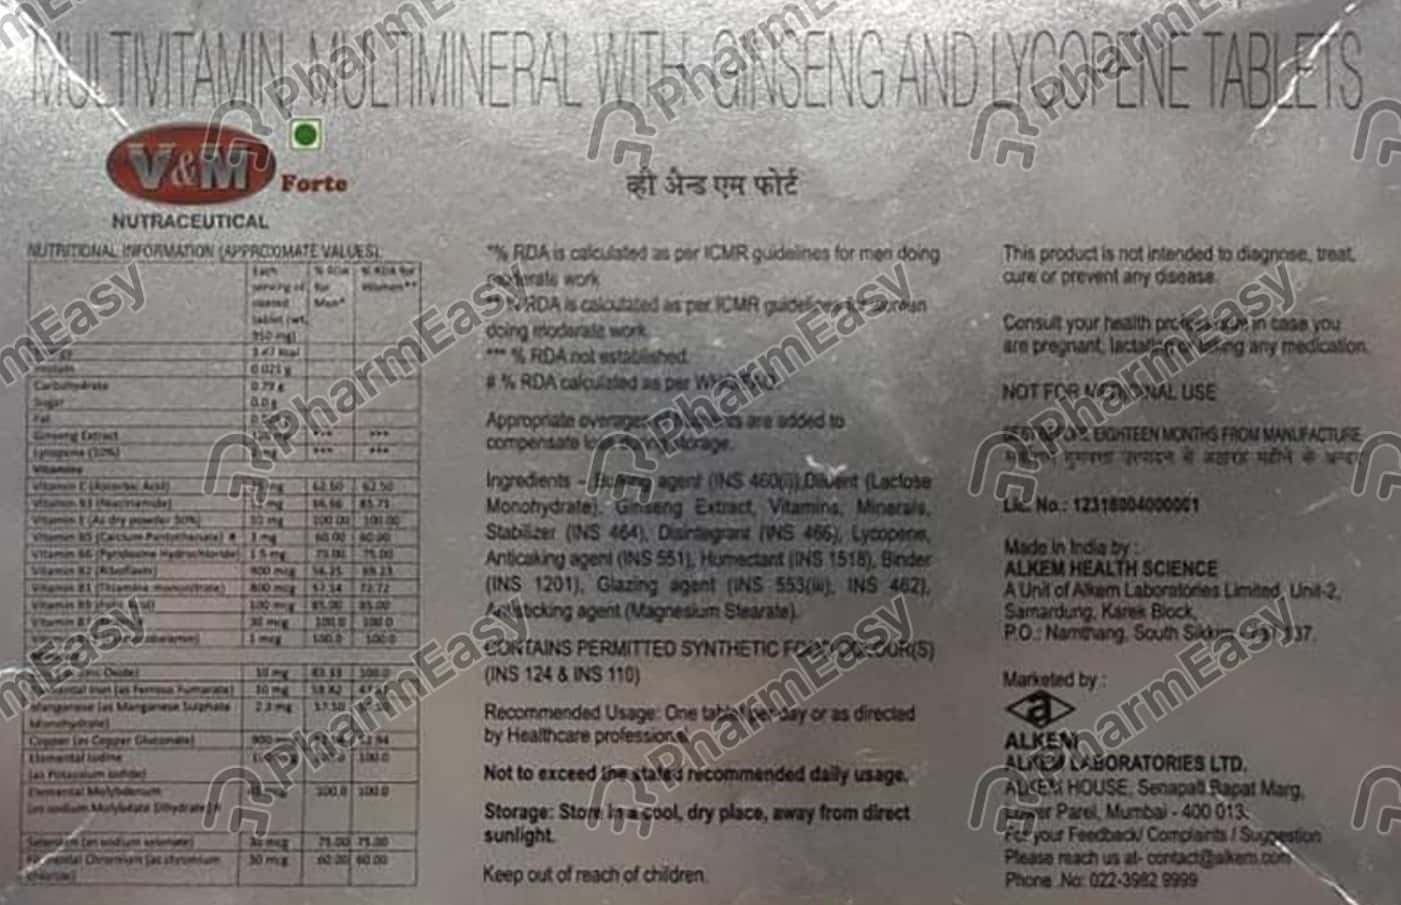 MULTIVITAMIN MULTIMINERAL WITH GINSENG AND LYCOPENE TABLETS
V&M Forte
NUTRACEUTICAL
व्ही अ‍ॅन्ड एम फोर्ट
NUTRITIONAL INFORMATION (APPROXIMATE VALUES)
Each serving of coated tablet (wt. 950 mg) % RDA for Men* % RDA for Women**
Protein 0.021 g
Carbohydrate 0.79 g
Sugar 0.0 g
Fat
Ginseng Extract *** ***
Lycopene (10%) *** ***
Vitamins
Vitamin C (Ascorbic Acid) 62.50 62.50
Vitamin B3 (Niacinamide) mg 66.66 85.71
Vitamin E (As dry powder 50%) 10 mg 100.00 100.00
Vitamin B5 (Calcium Pantothenate) # 3 mg 60.00 60.00
Vitamin B6 (Pyridoxine Hydrochloride) 1.5 mg 75.00 75.00
Vitamin B2 (Riboflavin) 900 mcg 56.25 69.23
Vitamin B1 (Thiamine mononitrate) 800 mcg 57.14 72.72
Vitamin B9 100 mcg
Vitamin 30 mcg 100.0 100.0
1 mcg 100.0 100.0
Oxide) 10 mg 83.33 100.0
Elemental Iron (as Ferrous Fumarate) 10 mg 58.82
Manganese (as Manganese Sulphate Monohydrate) 2.3 mg 57.50
Copper (as Copper Gluconate) 900
Elemental Iodine (as Potassium Iodide) 100.0
Elemental Molybdenum (as sodium Molybdate Dihydrate) # 100.0 100.0
Selenium (as sodium selenate) 30 mcg 75.00 75.00
Elemental Chromium (as chromium chloride) 30 mcg 60.00 60.00
*% RDA is calculated as per ICMR guidelines for men doing
moderate work
** % RDA is calculated as per ICMR guidelines for women
doing moderate work.
*** % RDA not established.
# % RDA calculated as per WHO/FAO.
Appropriate overages of nutrients are added to
compensate loss during storage.
Ingredients - Bulking agent (INS 460(i)), Diluent (Lactose
Monohydrate), Ginseng Extract, Vitamins, Minerals,
Stabilizer (INS 464), Disintegrant (INS 466), Lycopene,
Anticaking agent (INS 551), Humectant (INS 1518), Binder
(INS 1201), Glazing agent (INS 553(iii), INS 462),
Antisticking agent (Magnesium Stearate).
CONTAINS PERMITTED SYNTHETIC FOOD COLOUR(S)
(INS 124 & INS 110)
Recommended Usage: One tablet per day or as directed
by Healthcare professional.
Not to exceed the stated recommended daily usage.
Storage: Store in a cool, dry place, away from direct
sunlight.
Keep out of reach of children.
This product is not intended to diagnose, treat,
cure or prevent any disease.
Consult your health professional in case you
are pregnant, lactating or taking any medication.
NOT FOR MEDICINAL USE
BEST BEFORE EIGHTEEN MONTHS FROM MANUFACTURE.
गुणवत्ता उत्पादन से अठारह महीने के अन्दर
Lic. No.: 12318004000001
Made in India by :
ALKEM HEALTH SCIENCE
A Unit of Alkem Laboratories Limited, Unit-2,
Samardung, Karek Block,
P.O.: Namthang, South Sikkim - 737 137.
Marketed by :
a
ALKEM
ALKEM LABORATORIES LTD.
ALKEM HOUSE, Senapati Bapat Marg,
Lower Parel, Mumbai - 400 013.
For your Feedback/ Complaints / Suggestion
Please reach us at- contact@alkem.com
Phone .No: 022-3982 9999
PharmEasy